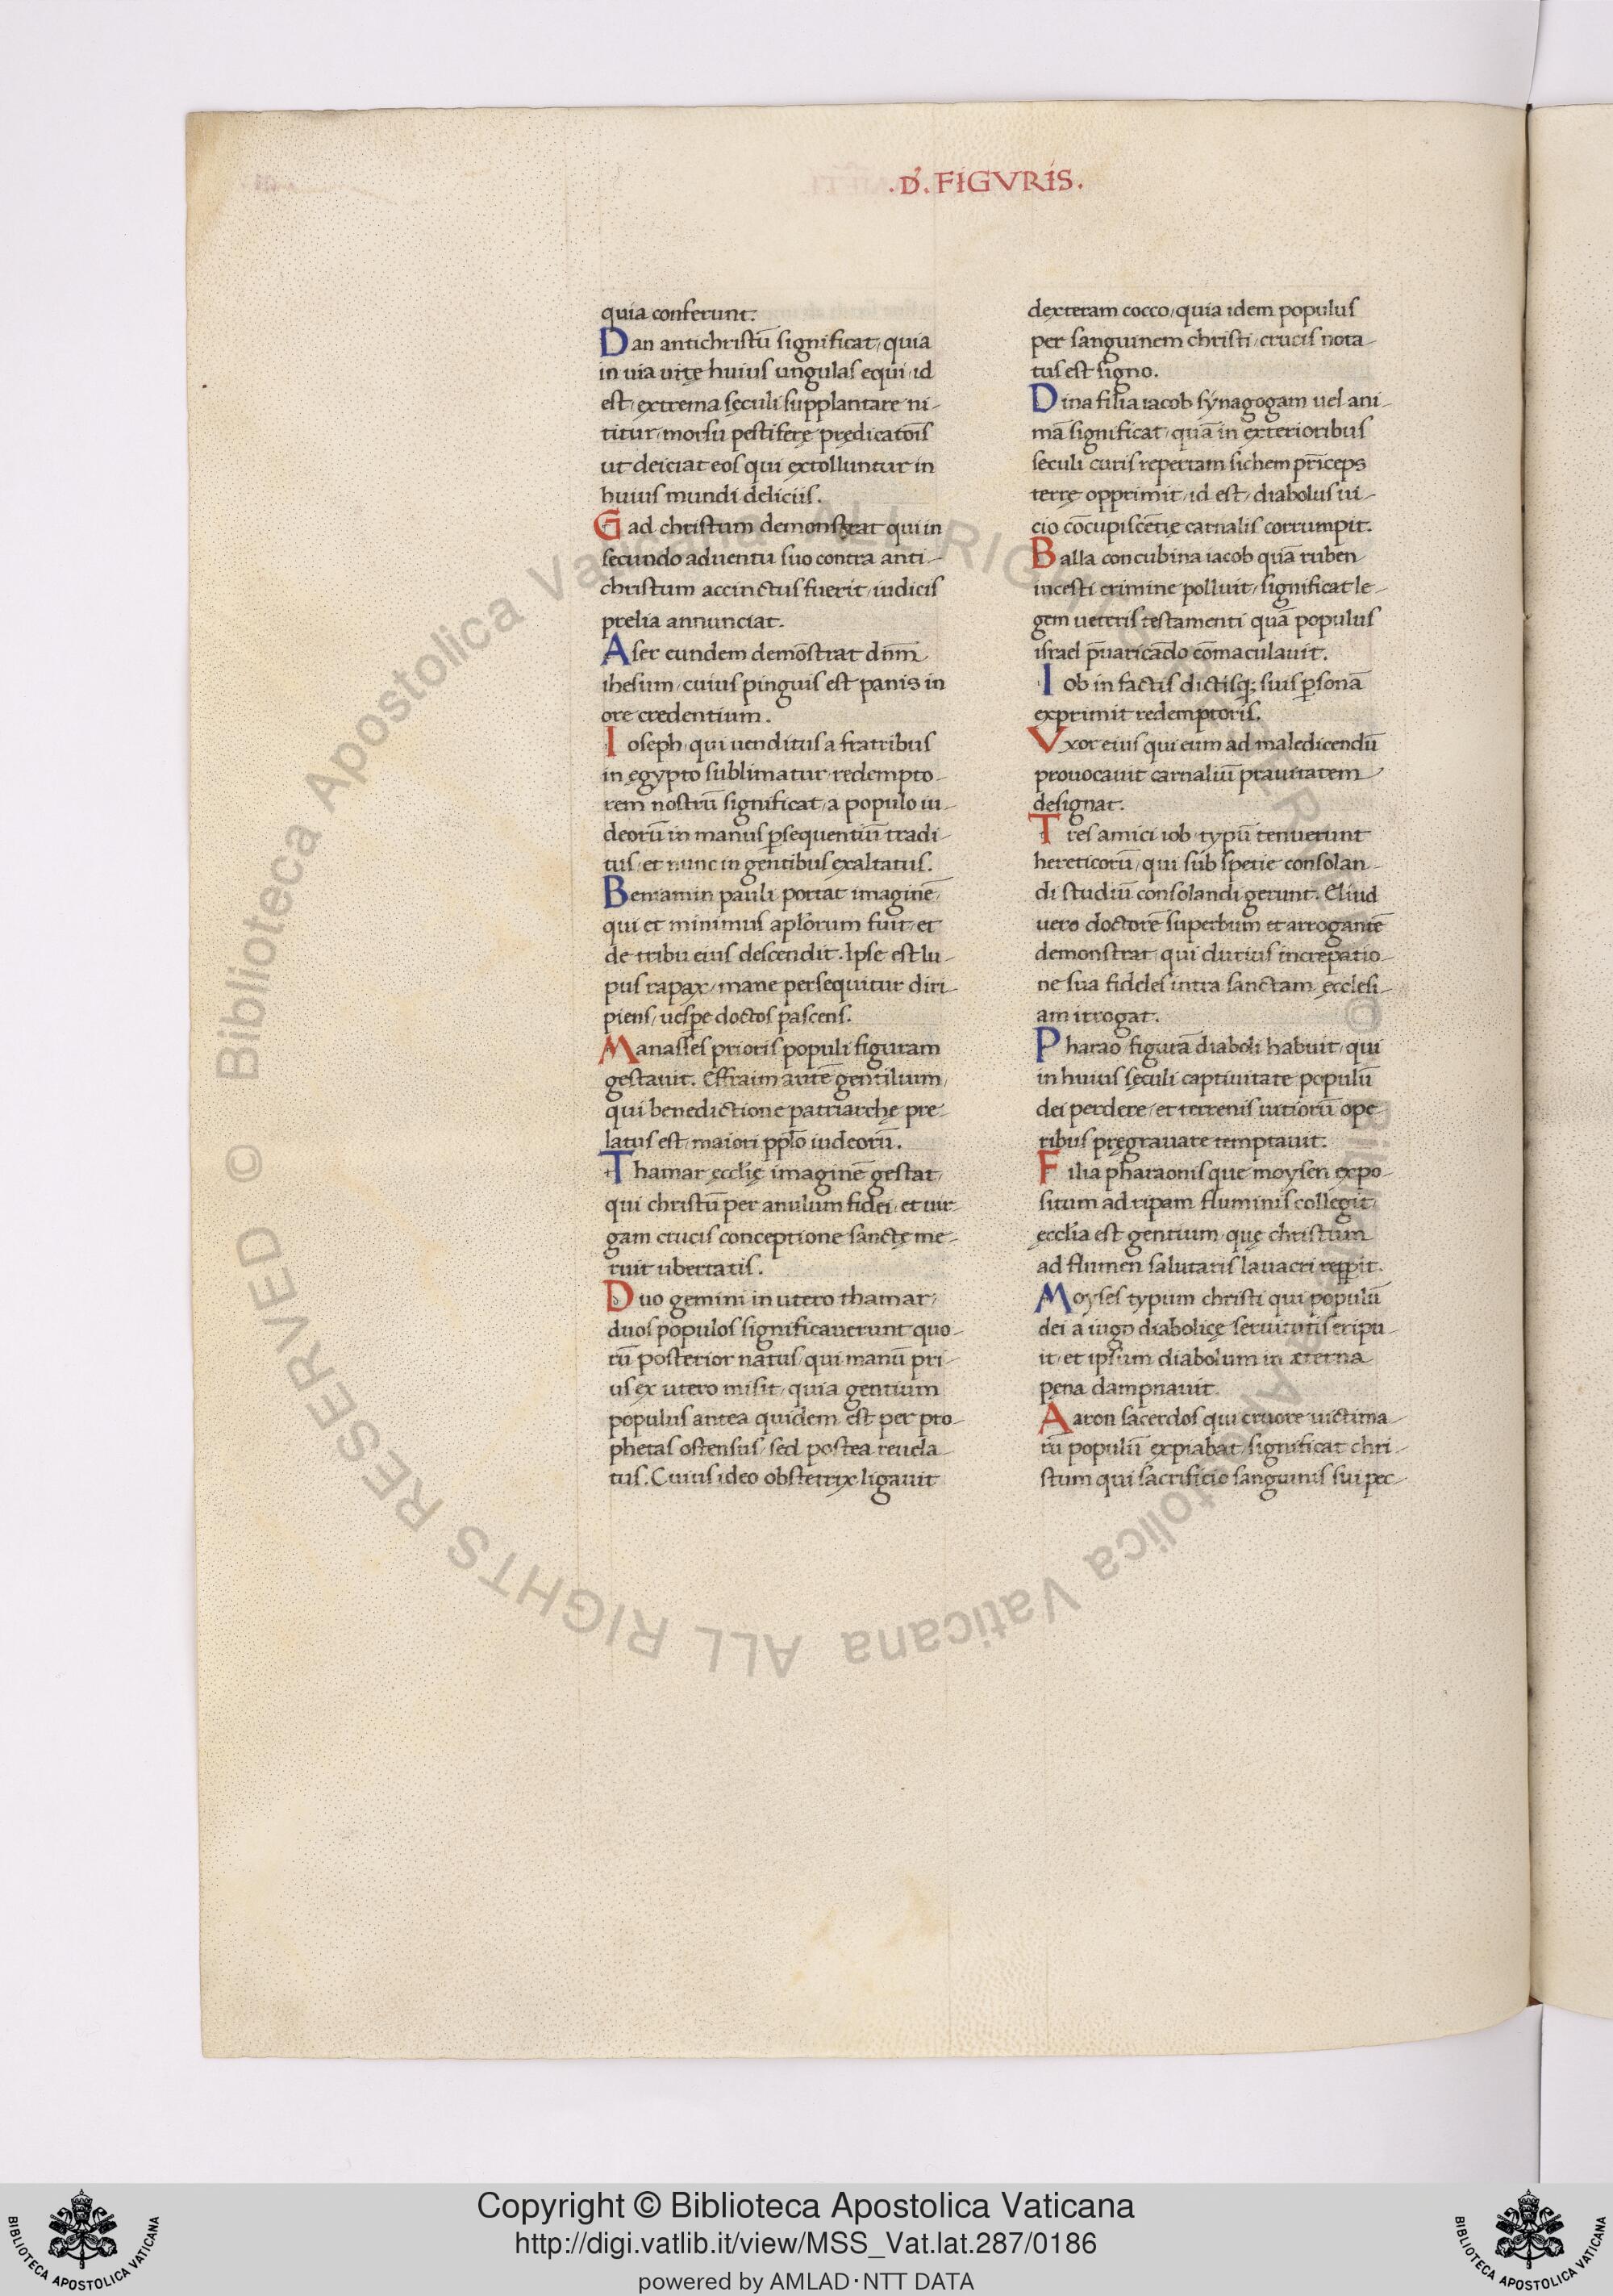 .D. FIGVRIS.
quia conferunt.
Dan antichristū significat, quia
in uia uitę huius ungulas equi, id
est, extrema sęculi supplantare ni-
titur, morsu pestiferę prędicatōis
ut deiciat eos qui extolluntur in
huius mundi deliciis.
Gad christum demonstrat qui in
secundo aduentu suo contra anti-
christum accinctus fuerit, iudicis
prelia annunciat.
Aser eundem demōstrat dn̄m
ihesum, cuius pinguis est panis in
ore credentium.
Ioseph, qui uenditus a fratribus
in ęgypto sublimatur, redempto-
rem nostrū significat, a populo iu-
deorū in manus ꝑsequentiū tradi-
tus, et nunc in gentibus exaltatus.
Beniamin pauli portat imaginē,
qui et minimus aplōrum fuit, et
de tribu eius descendit. Ipse est lu-
pus rapax, mane persequitur diri-
piens, uesꝑe doctos pascens.
Manasses prioris populi figuram
gestauit. Effraim autē gentilium,
qui benedictione patriarchę pre-
latus est, maiori pplō iudeorū.
Thamar ecclīę imaginē gestat,
qui christū per anulum fidei, et uir-
gam crucis conceptione sanctę me-
ruit ubertatis.
Duo gemini in utero thamar,
duos populos significauerunt quo-
rū posterior natus, qui manū pri-
us ex utero misit, quia gentium
populus antea quidem est per pro-
phetas ostensus, sed postea reuela-
tus. Cuius ideo obstetrix ligauit
dexteram cocco, quia idem populus
per sanguinem christi, crucis nota-
tus est signo.
Dina filia iacob synagogam uel ani-
mā significat, quā in exterioribus
seculi curis repertam sichem prīceps
terrę opprimit, id est, diabolus ui-
cio cōcupiscētię carnalis corrumpit.
Balla concubina iacob quā ruben
incesti crimine polluit, significat le-
gem ueteris testamenti quā populus
israel p̄uaricādo cōmaculauit.
Iob in factis dictisq; suis ꝑsonā
exprimit redemptoris.
Vxor eius qui eum ad maledicendū
prouocauit carnaliū prauitatem
designat.
Tres amici iob, typū tenuerunt
hereticorū, qui sub spetie consolan-
di studiū consolandi gerunt. Eliud
uero doctorē superbum et arrogantē
demonstrat, qui durius increpatio-
ne sua fideles intra sanctam ecclesi-
am irrogat.
Pharao, figurā diaboli habuit, qui
in huius sęculi captiuitate populū
dei perdere, et terrenis uitiorū ope-
ribus pręgrauare temptauit.
Filia pharaonis que moysen expo-
situm ad ripam fluminis collegit,
ecclīa est gentium, quę christum
ad flumen salutaris lauacri repꝑit.
Moyses typum christi qui populū
dei a iugo diabolicę seruitutis eripu-
it, et ipsum diabolum in ęterna
pena dampnauit.
Aaron sacerdos qui cruore uictima-
rū populū expiabat, significat chri-
stum qui sacrificio sanguinis sui pec-
© Biblioteca Apostolica Vaticana ALL RIGHTS RESERVED
© Biblioteca Apostolica Vaticana ALL RIGHTS RESERVED
BIBLIOTECA APOSTOLICA VATICANA
Copyright © Biblioteca Apostolica Vaticana
http://digi.vatlib.it/view/MSS_Vat.lat.287/0186
powered by AMLAD·NTT DATA
BIBLIOTECA APOSTOLICA VATICANA